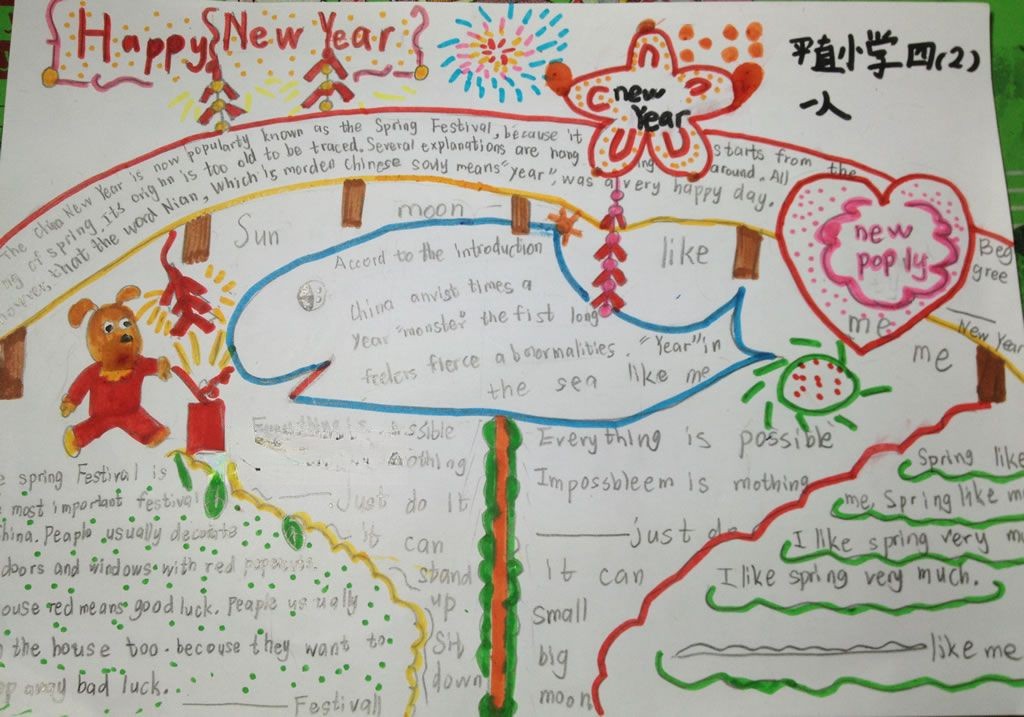 Happy New Year
平直小学四(2)
new
Year
The China New Year is now popularty known as the Spring Festival, because it starts from the
ng of spring. Its orighn is too old to be traced. Several explanations are hang around. All
however, that the word Nian, which is morden Chinese sody means "year", was a very happy day.
Sun
moon
like
new
poply
me
me
Beg
gree
New Year
Accord to the introduction
China anvist times a
Year "monster" the fist long
feelers fierce abnormalities. "Year" in
the sea like me
ssible
nothing
Just do It
it can
stand
up
SH
down
Everything is possible
Impossbleem is mothing
just do
It can
small
big
moon
spring Festival is
most important festival
hina. Peaple usually decotate
doors and windows with red
ouse red means good luck. Peaple usually
the house too. becouse they want to
away bad luck.
Festivall
Spring like
me. Spring like me
I like spring very mu
I like spring very much.
like me